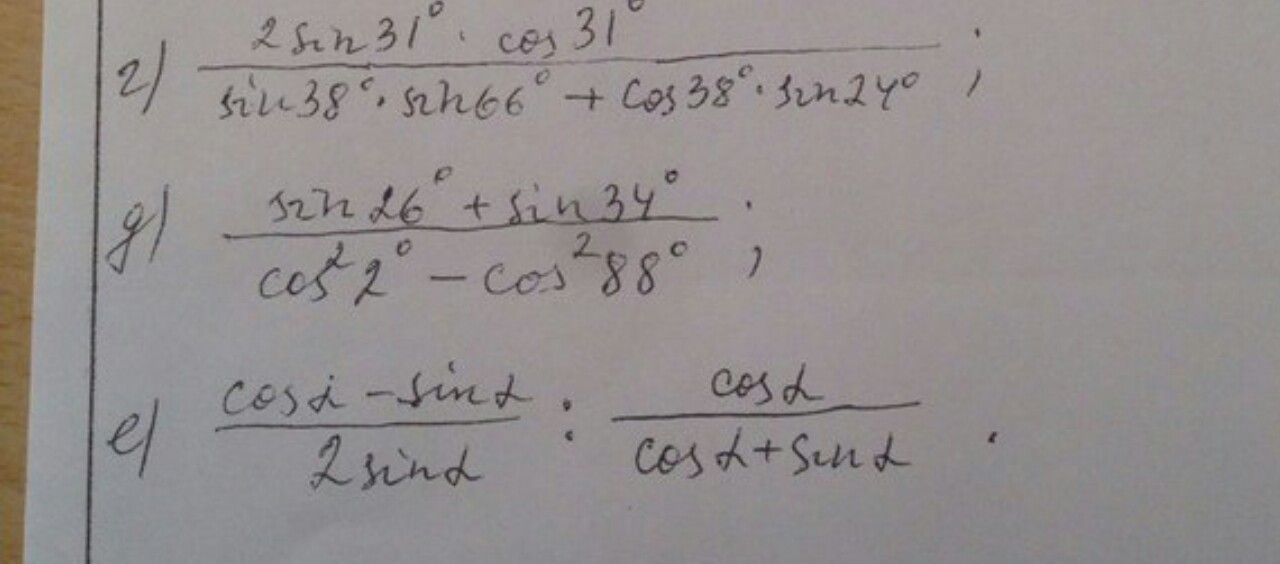 г) \frac{2 sin 31° · cos 31°}{sin 38° · sin 66° + cos 38° · sin 24°} ;
д) \frac{sin 26° + sin 34°}{cos² 2° − cos² 88°} ;
е) \frac{cos α − sin α}{2 sin α} : \frac{cos α}{cos α + sin α} .